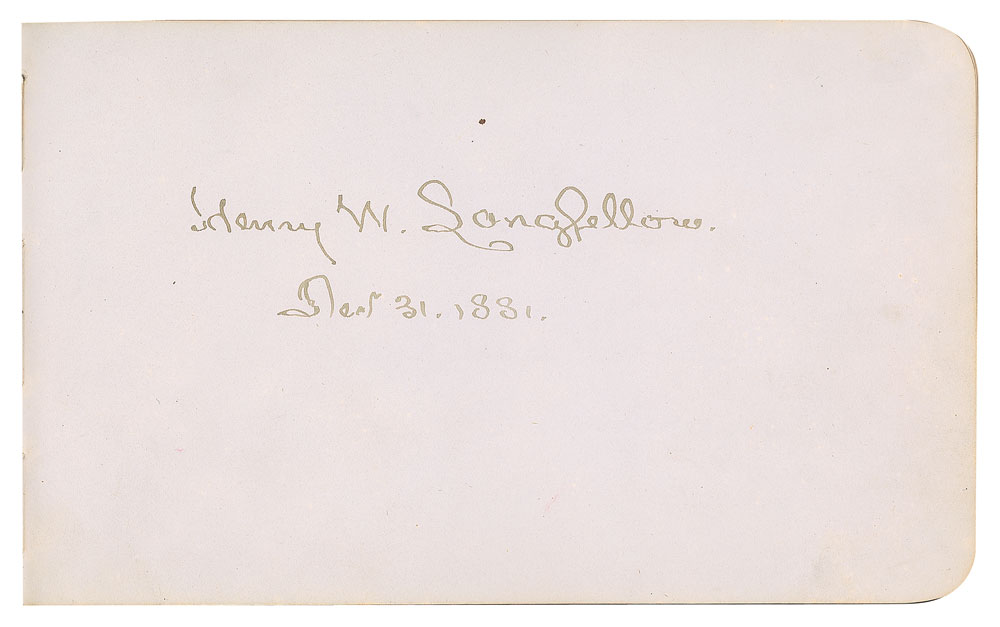 Henry W. Longfellow.
Dec 31. 1881.